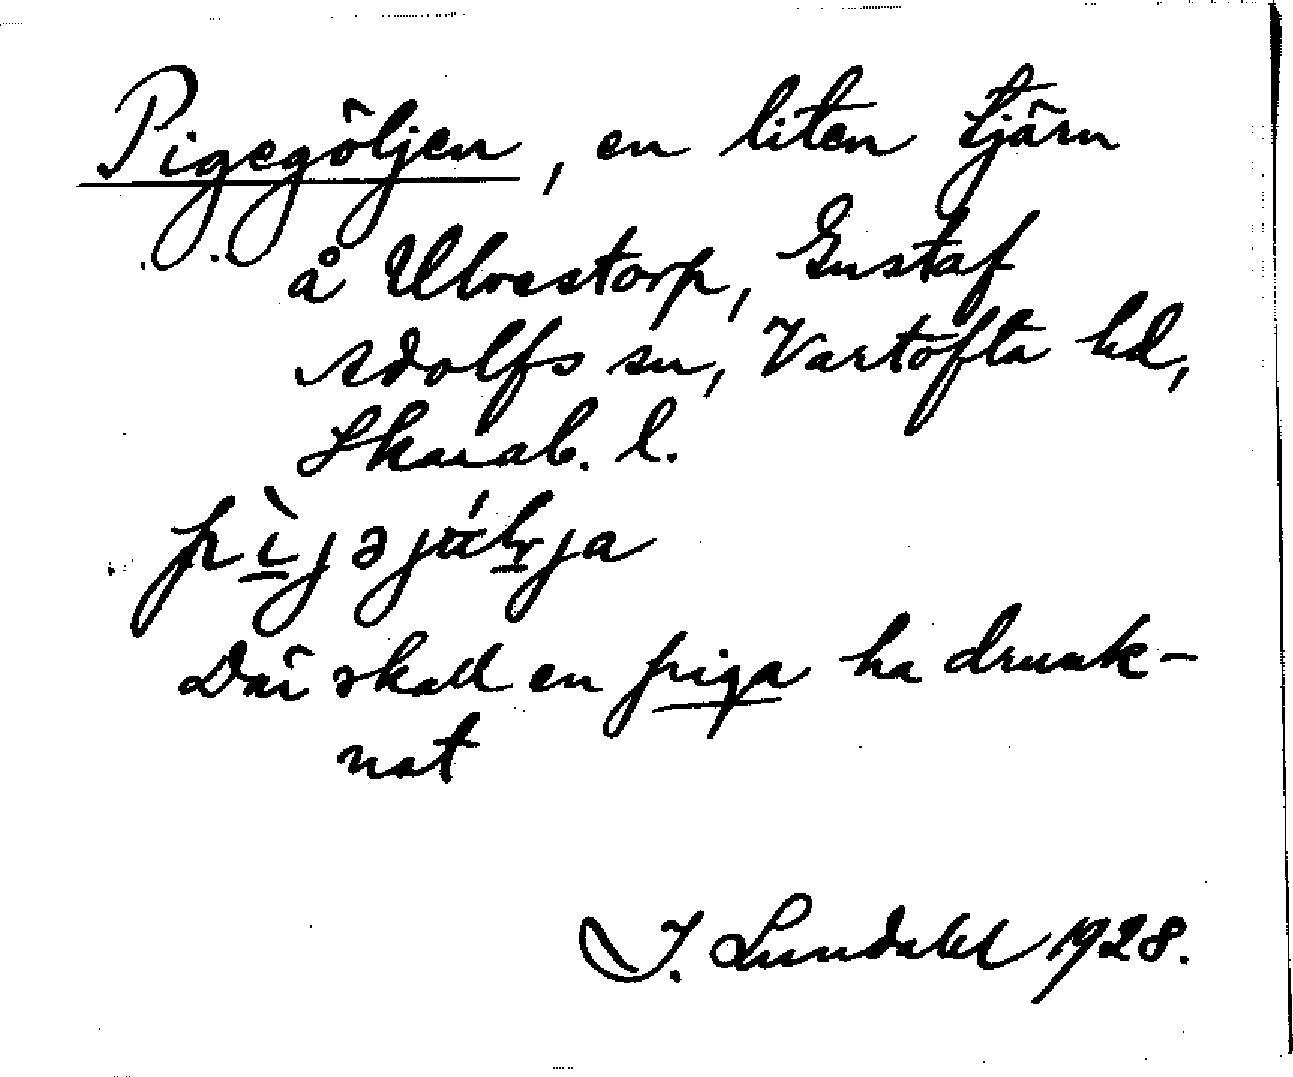 Pigegöljen, en liten tjärn
å Ulvestorp, Gustaf
Adolfs sn, Vartofta hd,
Skarab. l.
Där skall en piga ha drunk-
nat
I. Lundahl 1928.